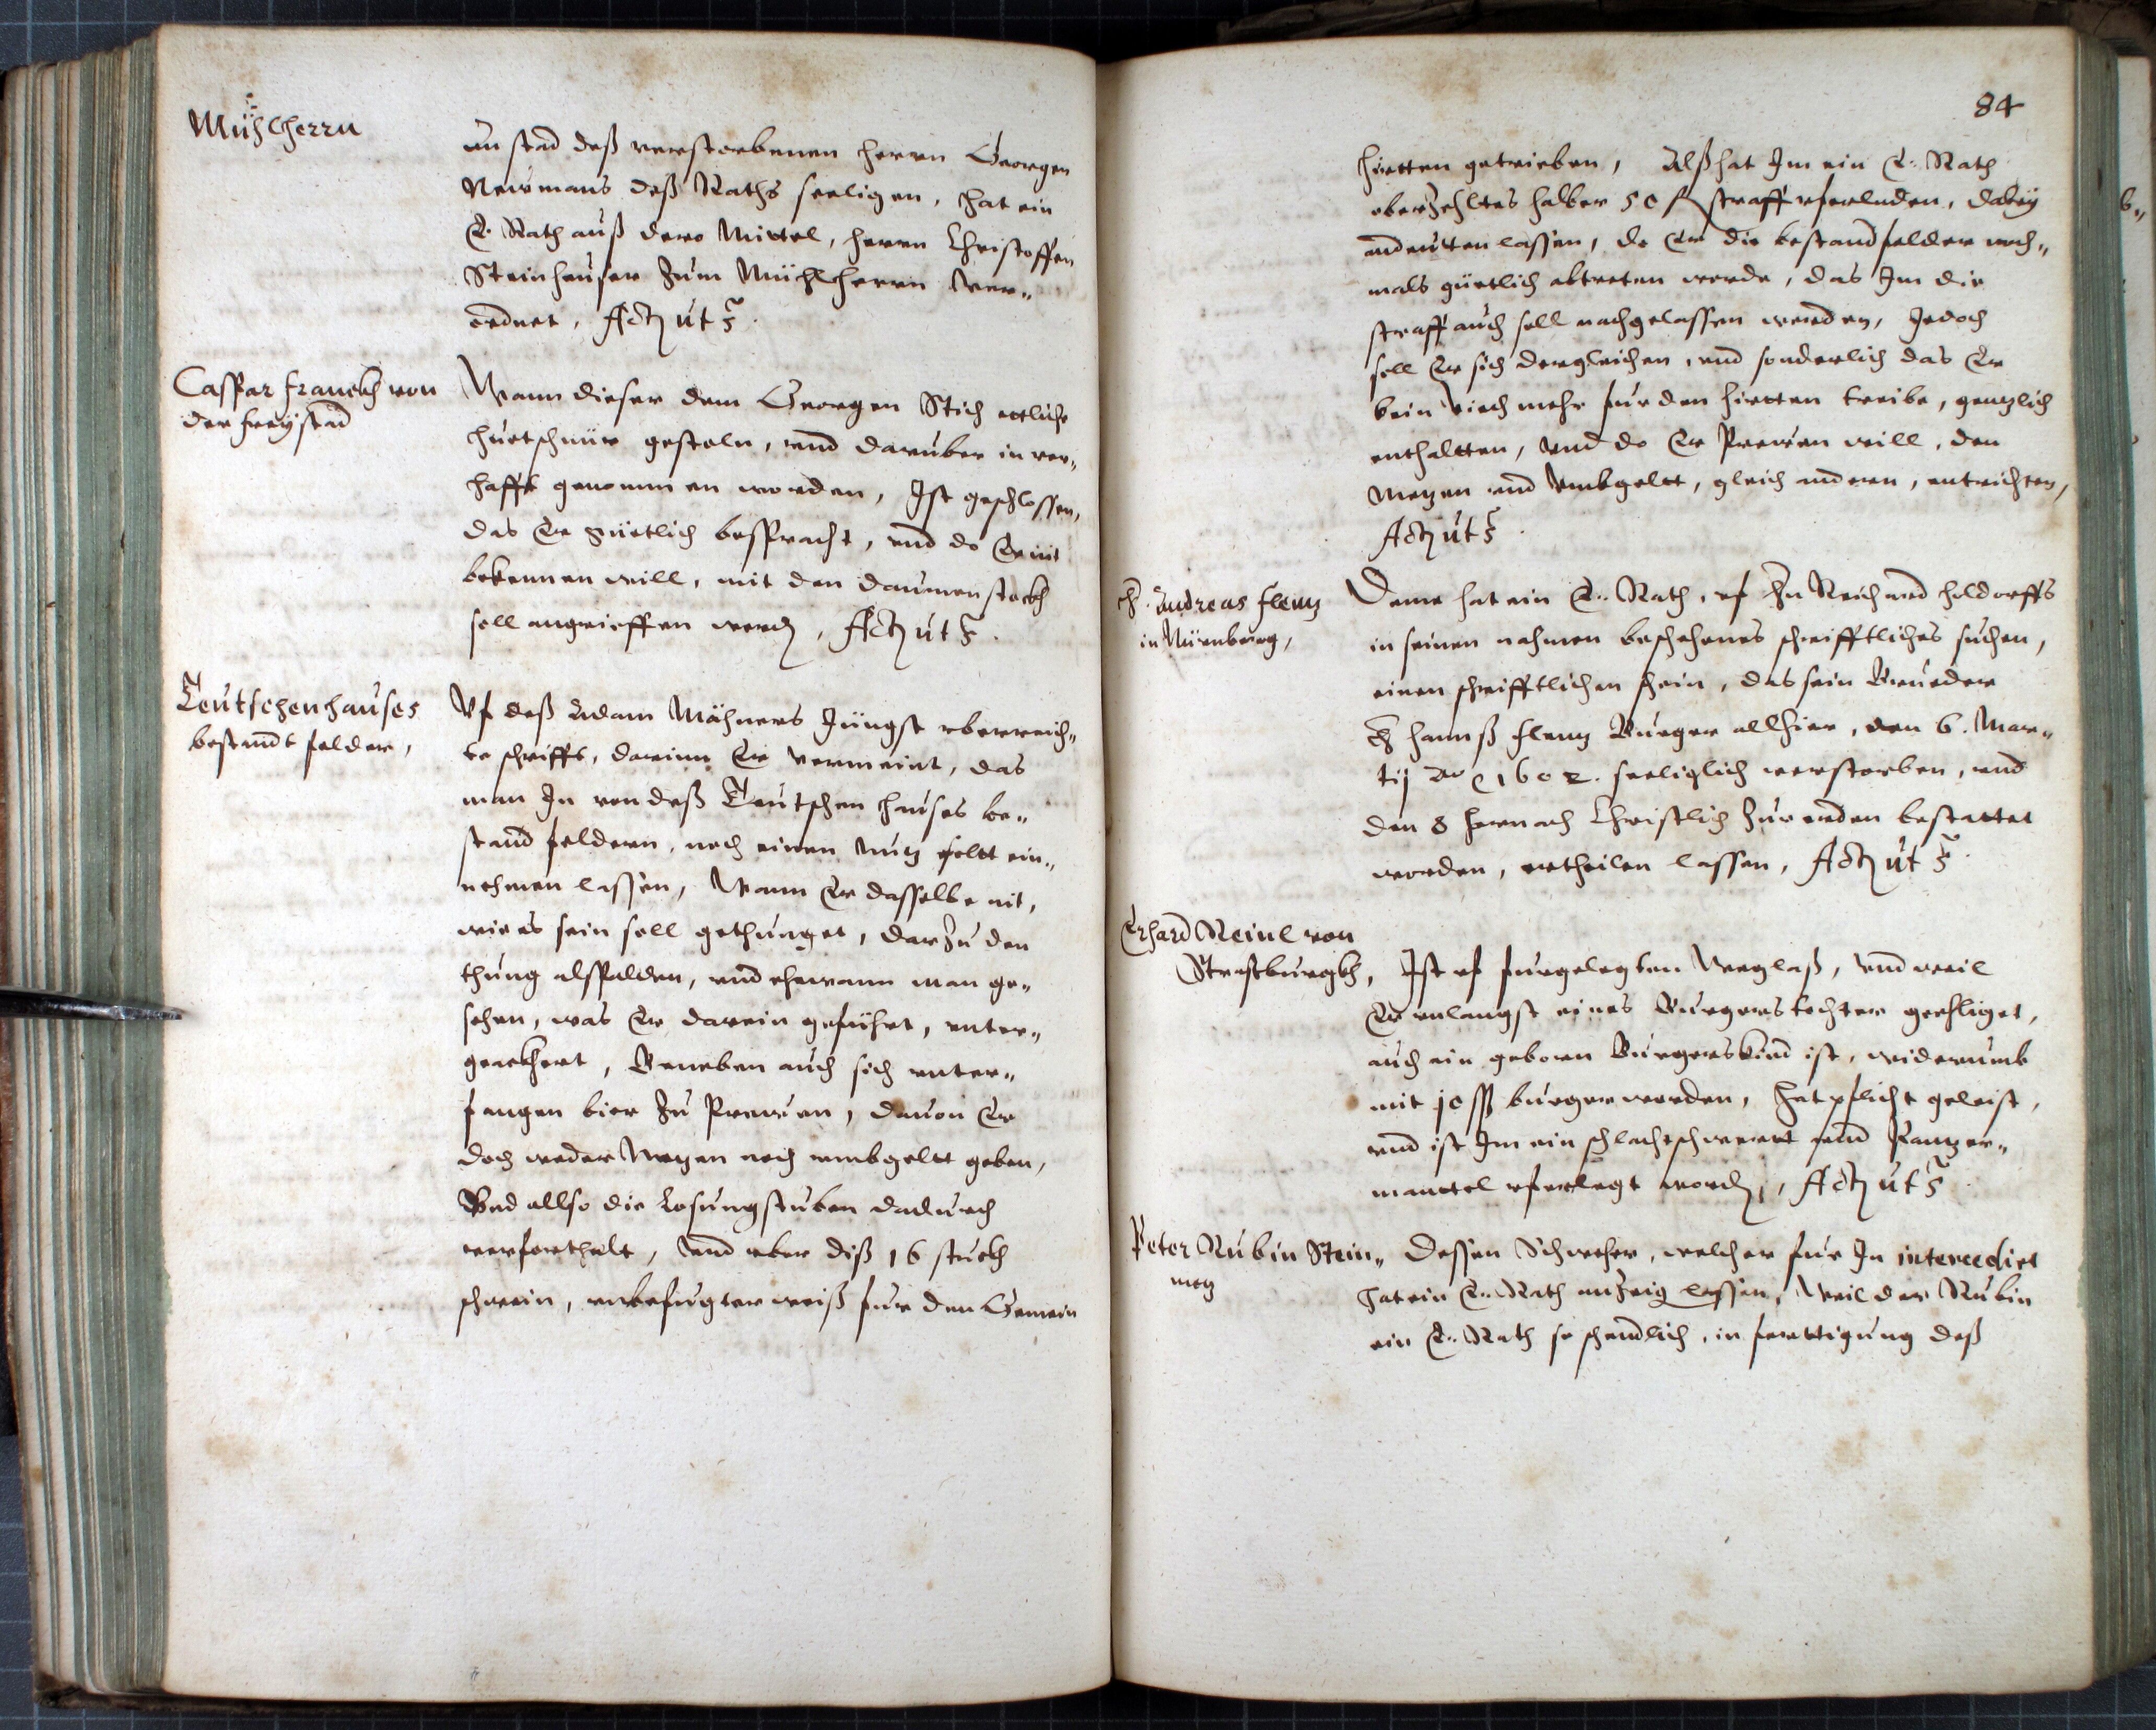 Mühlherrn
an stad deß verstorbenen herrn Georgen
Newmans deß Raths seeligen, hat ein
E. Rath auß dero Mittel, herrn Christoffen
Steinhauser zum Mühlherrn ver„
ordnet, Actum ut s.
Caspar Franckh von
der Freystad
Wann dieser dem Georgen Stich ettliche
huetschnür gestoln, und darüber in ver„
hafft genommen worden, Ist geschlossen,
das Er güetlich bespracht, und do Er nit
bekennen will, mit den daumenstockh
soll angrieffen werden, Actum ut s.
Teutschenhauses
bestandt felder,
Uf deß Adam Mähners Jüngst uberreich„
te schrifft, darinn Er vermeint, das
man In von deß Teutschen hauses be„
stand feldern, noch einen nutz solt ein„
nehmen lassen, Wann Er dasselbe nit,
wie es sein soll gethunget, darzu den
thung alspalden, und ehe wann man ge„
sehen, was Er darein geführt, unter„
geackhert, Beneben auch sich unter„
fangen bier zu Prewen, davon Er
doch weder Metzen noch umbgeltt geben,
Und allso die Losungstuben dadurch
vervortheilt, und uber diß 16 stuckh
schwein, unbefugter weiß fur den Gemein
84
hirtten getrieben, Alß hat Im ein E. Rath
oberzehltes halber 50 fl straff uferladen, dabey
andeutten lassen, do Er die bestandfelder noch„
mals güetlich abtreten werde, das Im die
straff auch soll nachgelassen werden, Jedoch
soll Er sich dergleichen, und sonderlich das Er
kein Viech mehr fur den hirtten treibe, gentzlich
enthaltten, und do Er Prewen will, den
Metzen und Umbgeltt, gleich andern, entrichten,
Actum ut s.
H. Andreas Flentz
in Nürenberg,
Deme hat ein E. Rath, uf Hn Reichard Holdorffs
in seinen nahmen beschehenes schrifftliches suchen,
einen schrifftlichen schein, das sein Brueder
H hannß Flentz Burger allhier, den 6. Mar„
tij Ao 1602. seeliglich verstorben, und
den 8 hernach Christlich zur erden bestattet
worden, ertheilen lassen, Actum ut s.
Erhard Reinl von
Strasburgkh,
Ist uf furgelegten Weglaß, und weil
Er unlangst eines Burgers tochter geehliget,
auch ein geborn Burgerskind ist, widerumb
mit 10 ß burger worden, hat pflicht geleist,
und ist Im ein schlachtschwertt und Pantzer„
manttel uferlegt worden, Actum ut s.
Peter Rubin Stein„
metz
Dessen Schweher, welcher fur In intercedirt
hat ein E. Rath anzeig lassen, Weil der Rubin
ein E. Rath so schendlich, in ferttigung deß